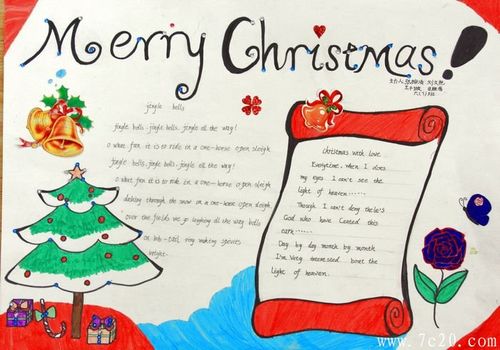 Merry Christmas!
jingle bells
jingle bells, jingle bells, jingle all the way!
o what fun it is to ride in a one-horse open sleigh
jingle bells, jingle bells, jingle all the way!
o what fun it is to ride in a one-horse open sleigh
dashing through the snow in a one-horse open sleigh
over the fields we go laughing all the way bells
on bob-tail ring making spirits
bright
Christmas with love
Everytime, when I does
my eyes I can't see the
light of heaven......
Though I can't deny thele's
God who have Cented this
eath......
Day by day month by month
I'm Very interessed bout the
Light of heaven.
www.7c20.com